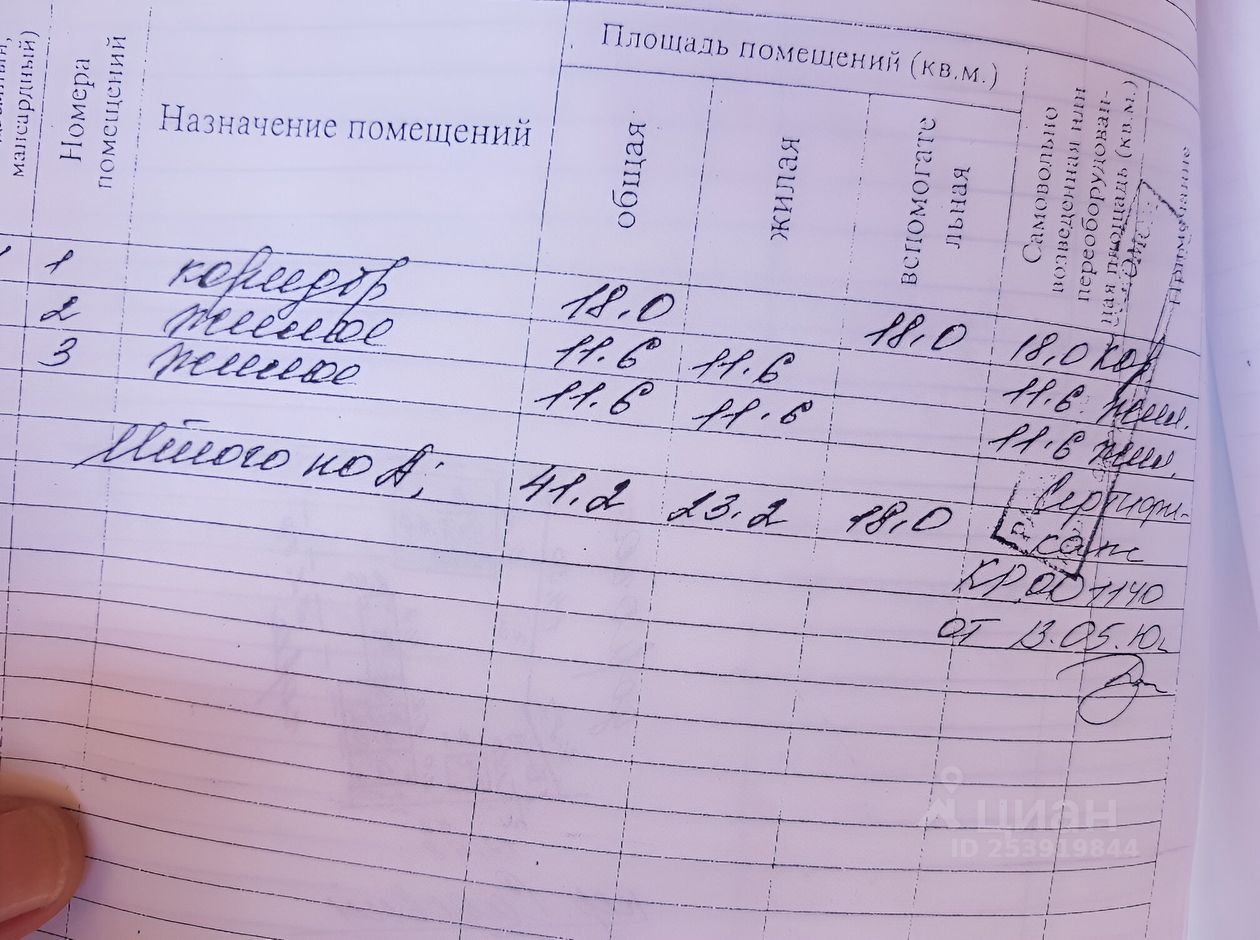 мансардный)
Номера
помещений
Назначение помещений
Площадь помещений (кв.м.)
общая
жилая
вспомогате
льная
Самовольно
возведенная или
переоборудован-
ная площадь (кв.м.)
Примечание
1 коридор 18.0 18.0 18.0 кор
2 жилое 11.6 11.6 11.6 жил.
3 жилое 11.6 11.6 11.6 жил.
Итого по А; 41.2 23.2 18.0
Сертифи-
кат
КР 001140
от 13.05.10г
циан
ID 253919844